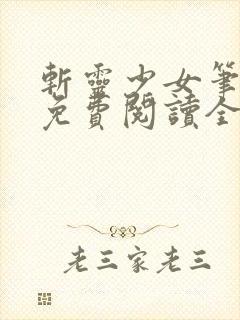 斬靈少女筆
免費閱讀全
老三家老三